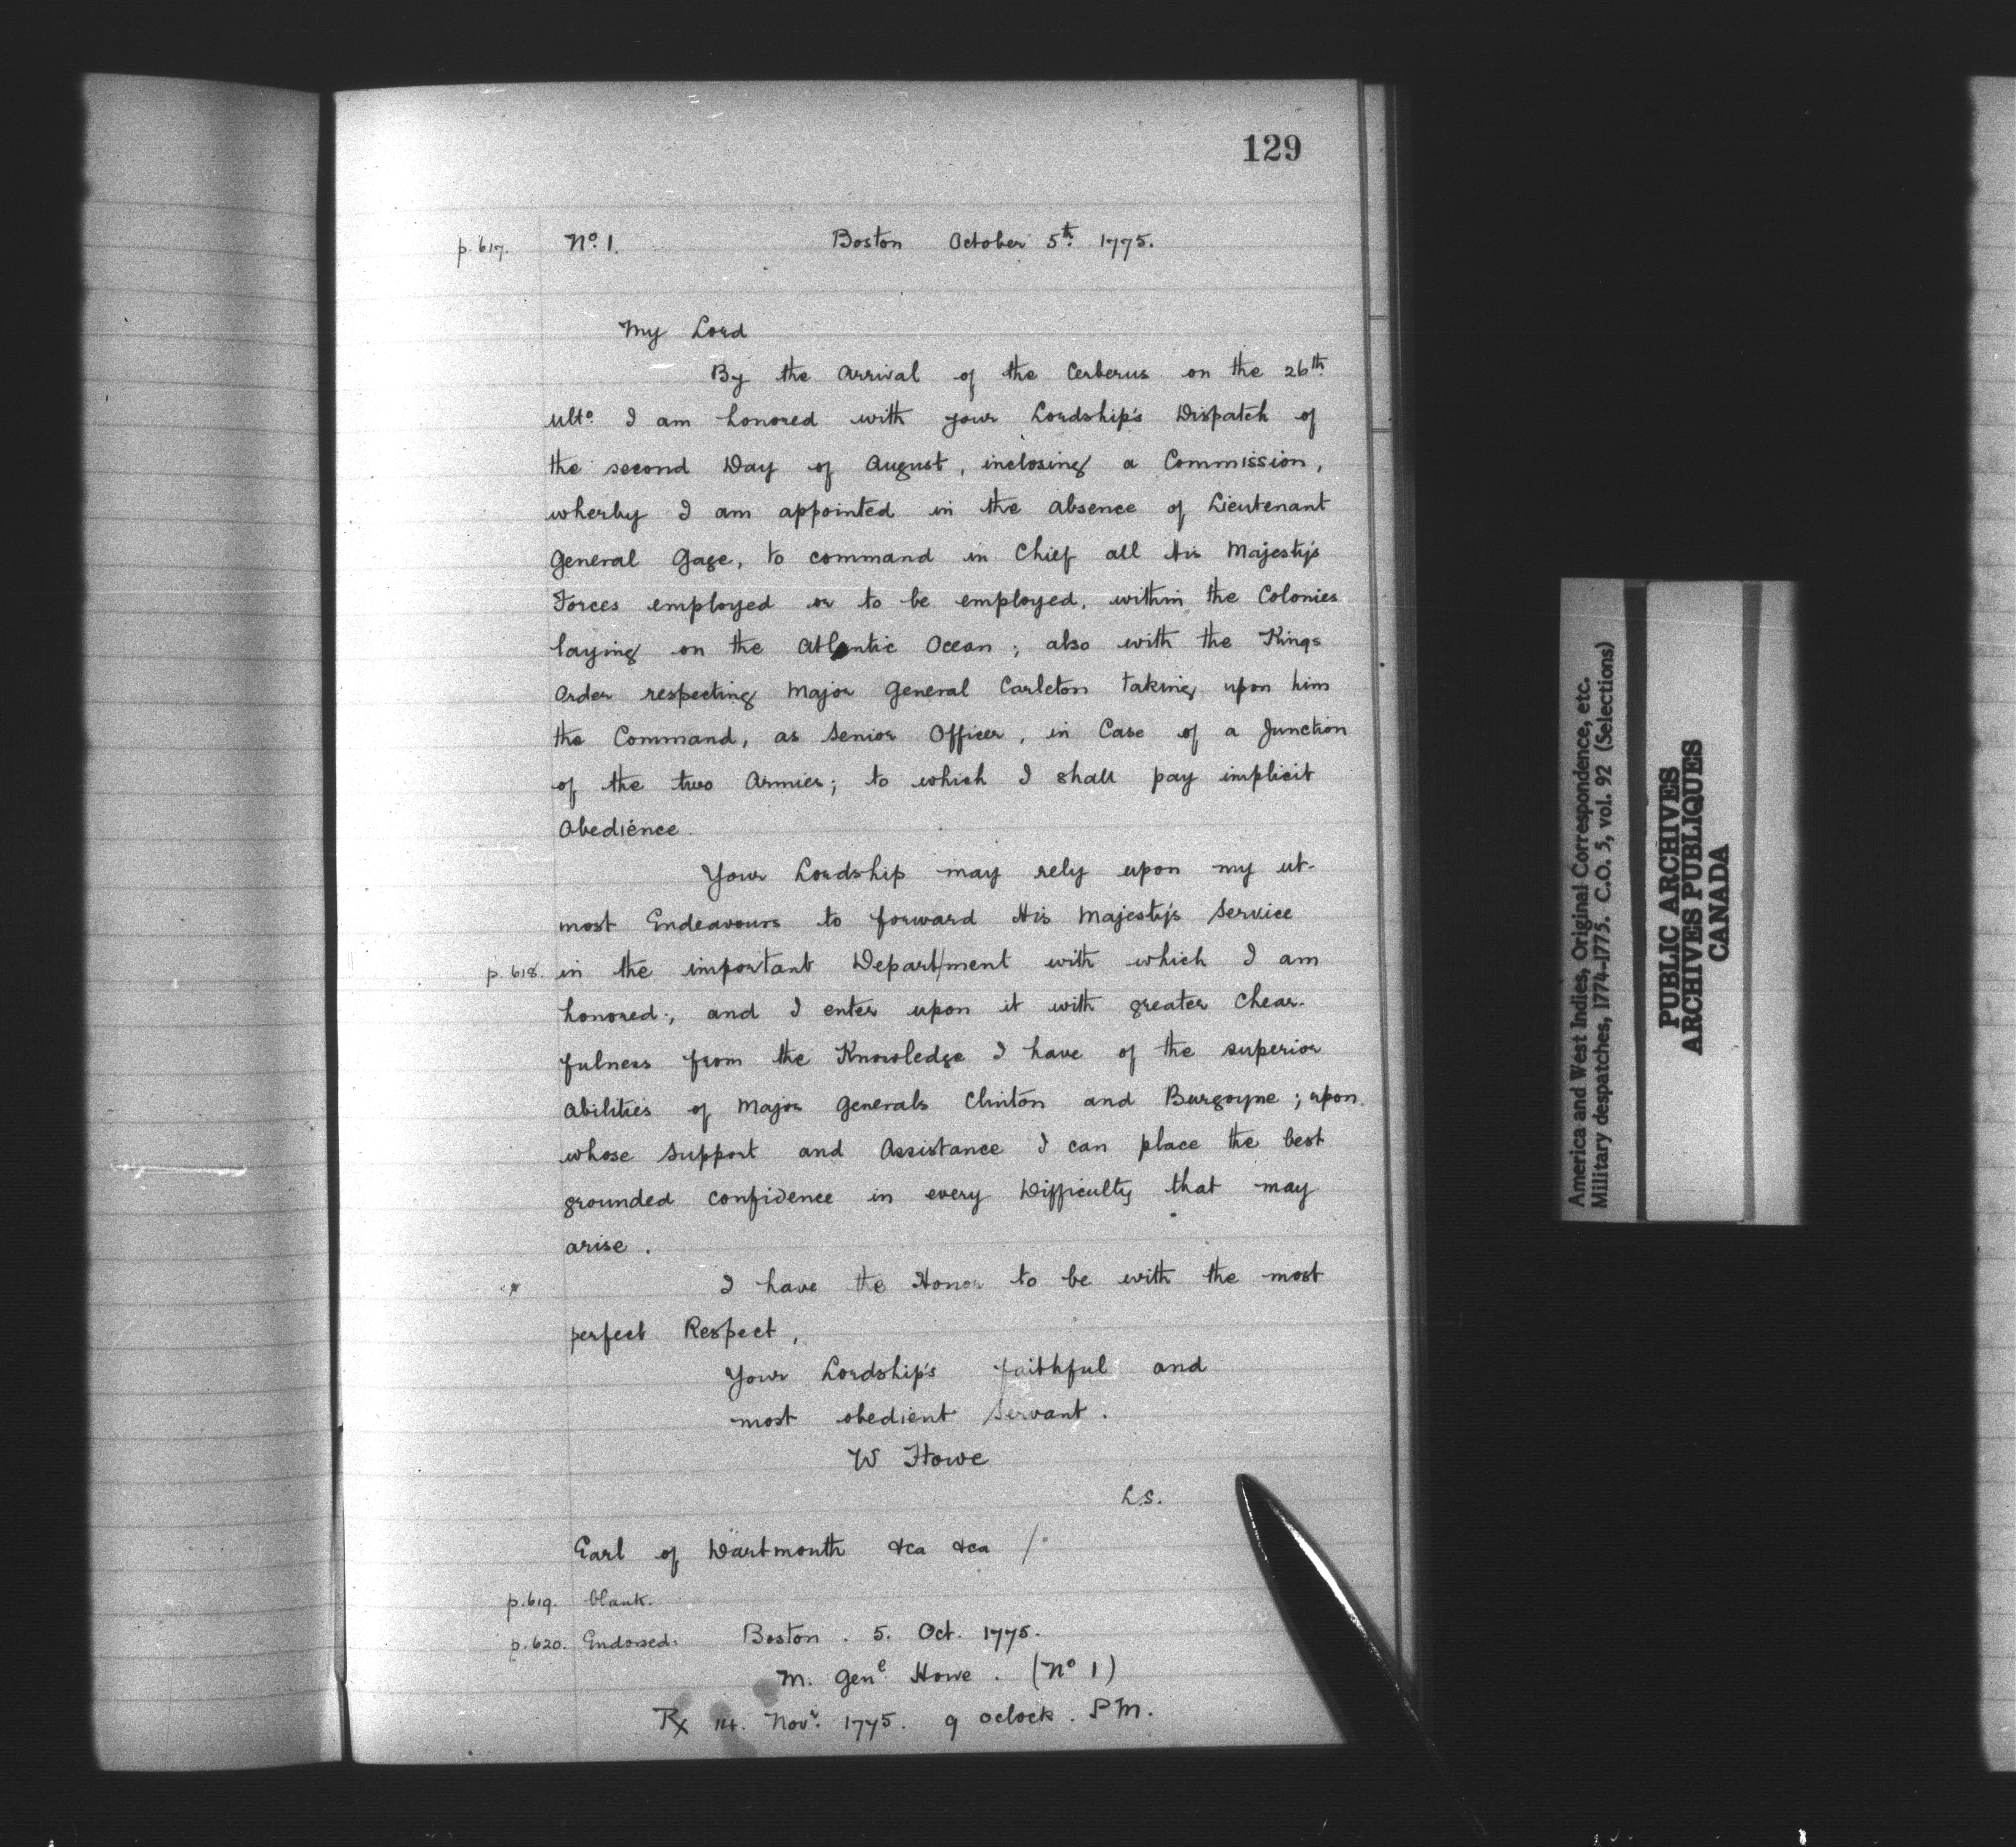 129
p. 617. No. 1. Boston October 5th. 1775.
My Lord
By the Arrival of the Cerberus on the 26th.
Ulto. I am honored with your Lordship's Dispatch of
the second Day of August, inclosing a Commission,
wherby I am appointed in the absence of Lieutenant
General Gage, to command in Chief all His Majesty's
Forces employed or to be employed, within the Colonies
laying on the Atlantic Ocean; also with the Kings
Order respecting Major General Carleton taking upon him
the Command, as Senior Officer, in Case of a Junction
of the two Armies; to which I shall pay implicit
Obedience.
Your Lordship may rely upon my ut-
most Endeavours to forward His Majesty's Service
p. 618. in the important Depart/ment with which I am
honored; and I enter upon it with greater Chear-
fulness from the Knowledge I have of the superior
Abilities of Major Generals Clinton and Burgoyne; upon
whose Support and Assistance I can place the best
grounded confidence in every Difficulty that may
arise.
I have the Honor to be with the most
perfect Respect,
Your Lordship's faithful and
most obedient Servant.
W Howe
L.S.
Earl of Dartmouth &ca &ca /.
p. 619. blank.
p. 620. Endorsed. Boston. 5. Oct. 1775.
M. Genl. Howe. (No 1)
Rx 14. Novr. 1775. 9 oclock. PM.
America and West Indies, Original Correspondence, etc.
Military despatches, 1774-1775. C.O. 5, vol. 92 (Selections)
PUBLIC ARCHIVES
ARCHIVES PUBLIQUES
CANADA